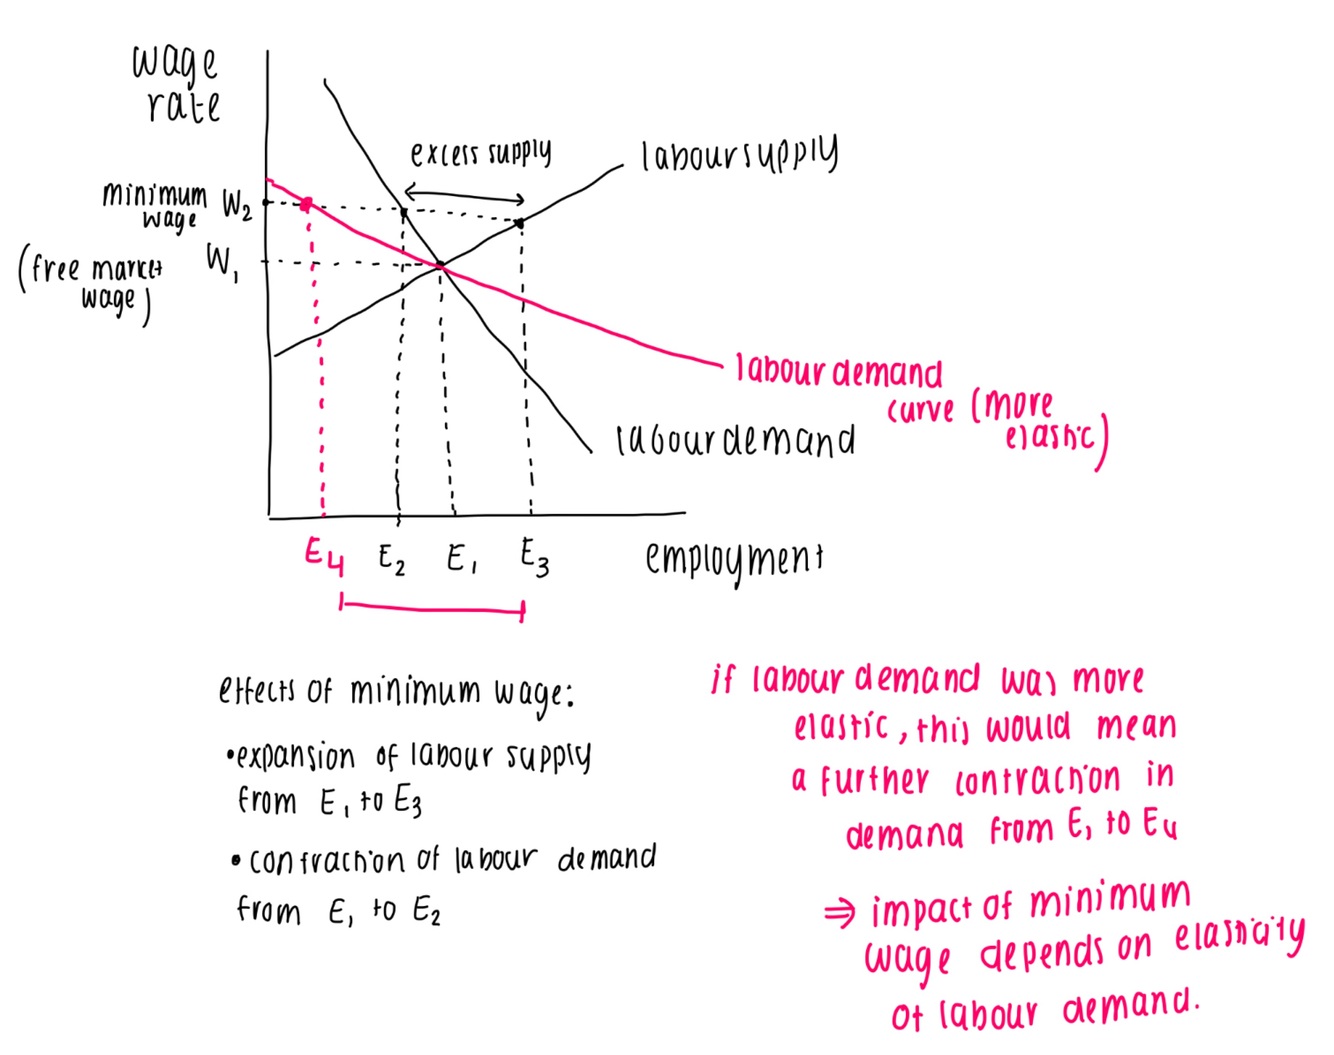 wage
rate
excess supply
labour supply
minimum W₂
wage
(free market W₁
wage)
labour demand
curve (more
elastic)
labour demand
E₄ E₂ E₁ E₃ employment
effects of minimum wage:
•expansion of labour supply
from E₁ to E₃
• contraction of labour demand
from E₁ to E₂
if labour demand was more
elastic, this would mean
a further contraction in
demand from E₁ to E₄
⇒ impact of minimum
wage depends on elasticity
of labour demand.